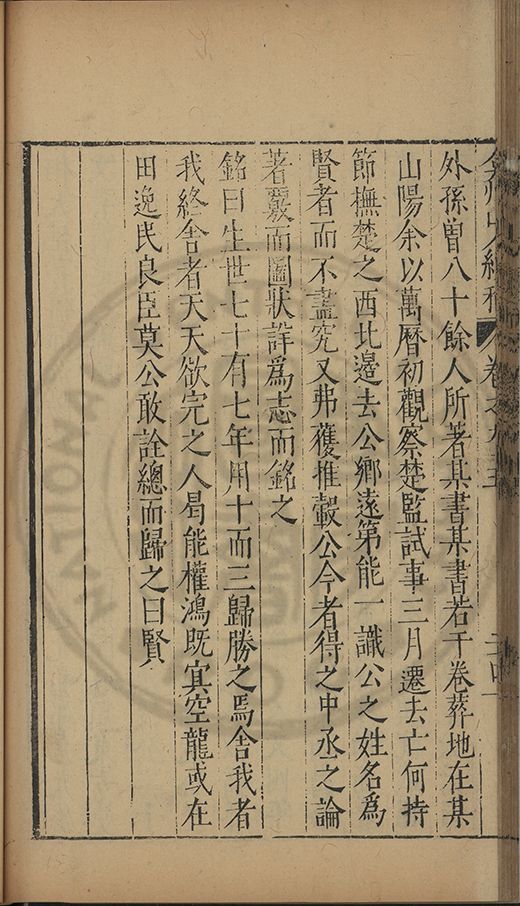 外孫曾八十餘人所著某書某書若干卷葬地在某
山陽余以萬曆初觀察楚監試事三月遷去亡何持
節撫楚之西北邊去公鄉遠第能一識公之姓名爲
賢者而不盡究又弗獲推轂公今者得之中丞之論
著覈而圖狀詳爲志而銘之
銘曰生世七十有七年用十而三歸勝之焉舍我者
我終舍者天天欲完之人曷能權鴻旣寘空龍或在
田逸民良臣莫公敢詮總而歸之曰賢